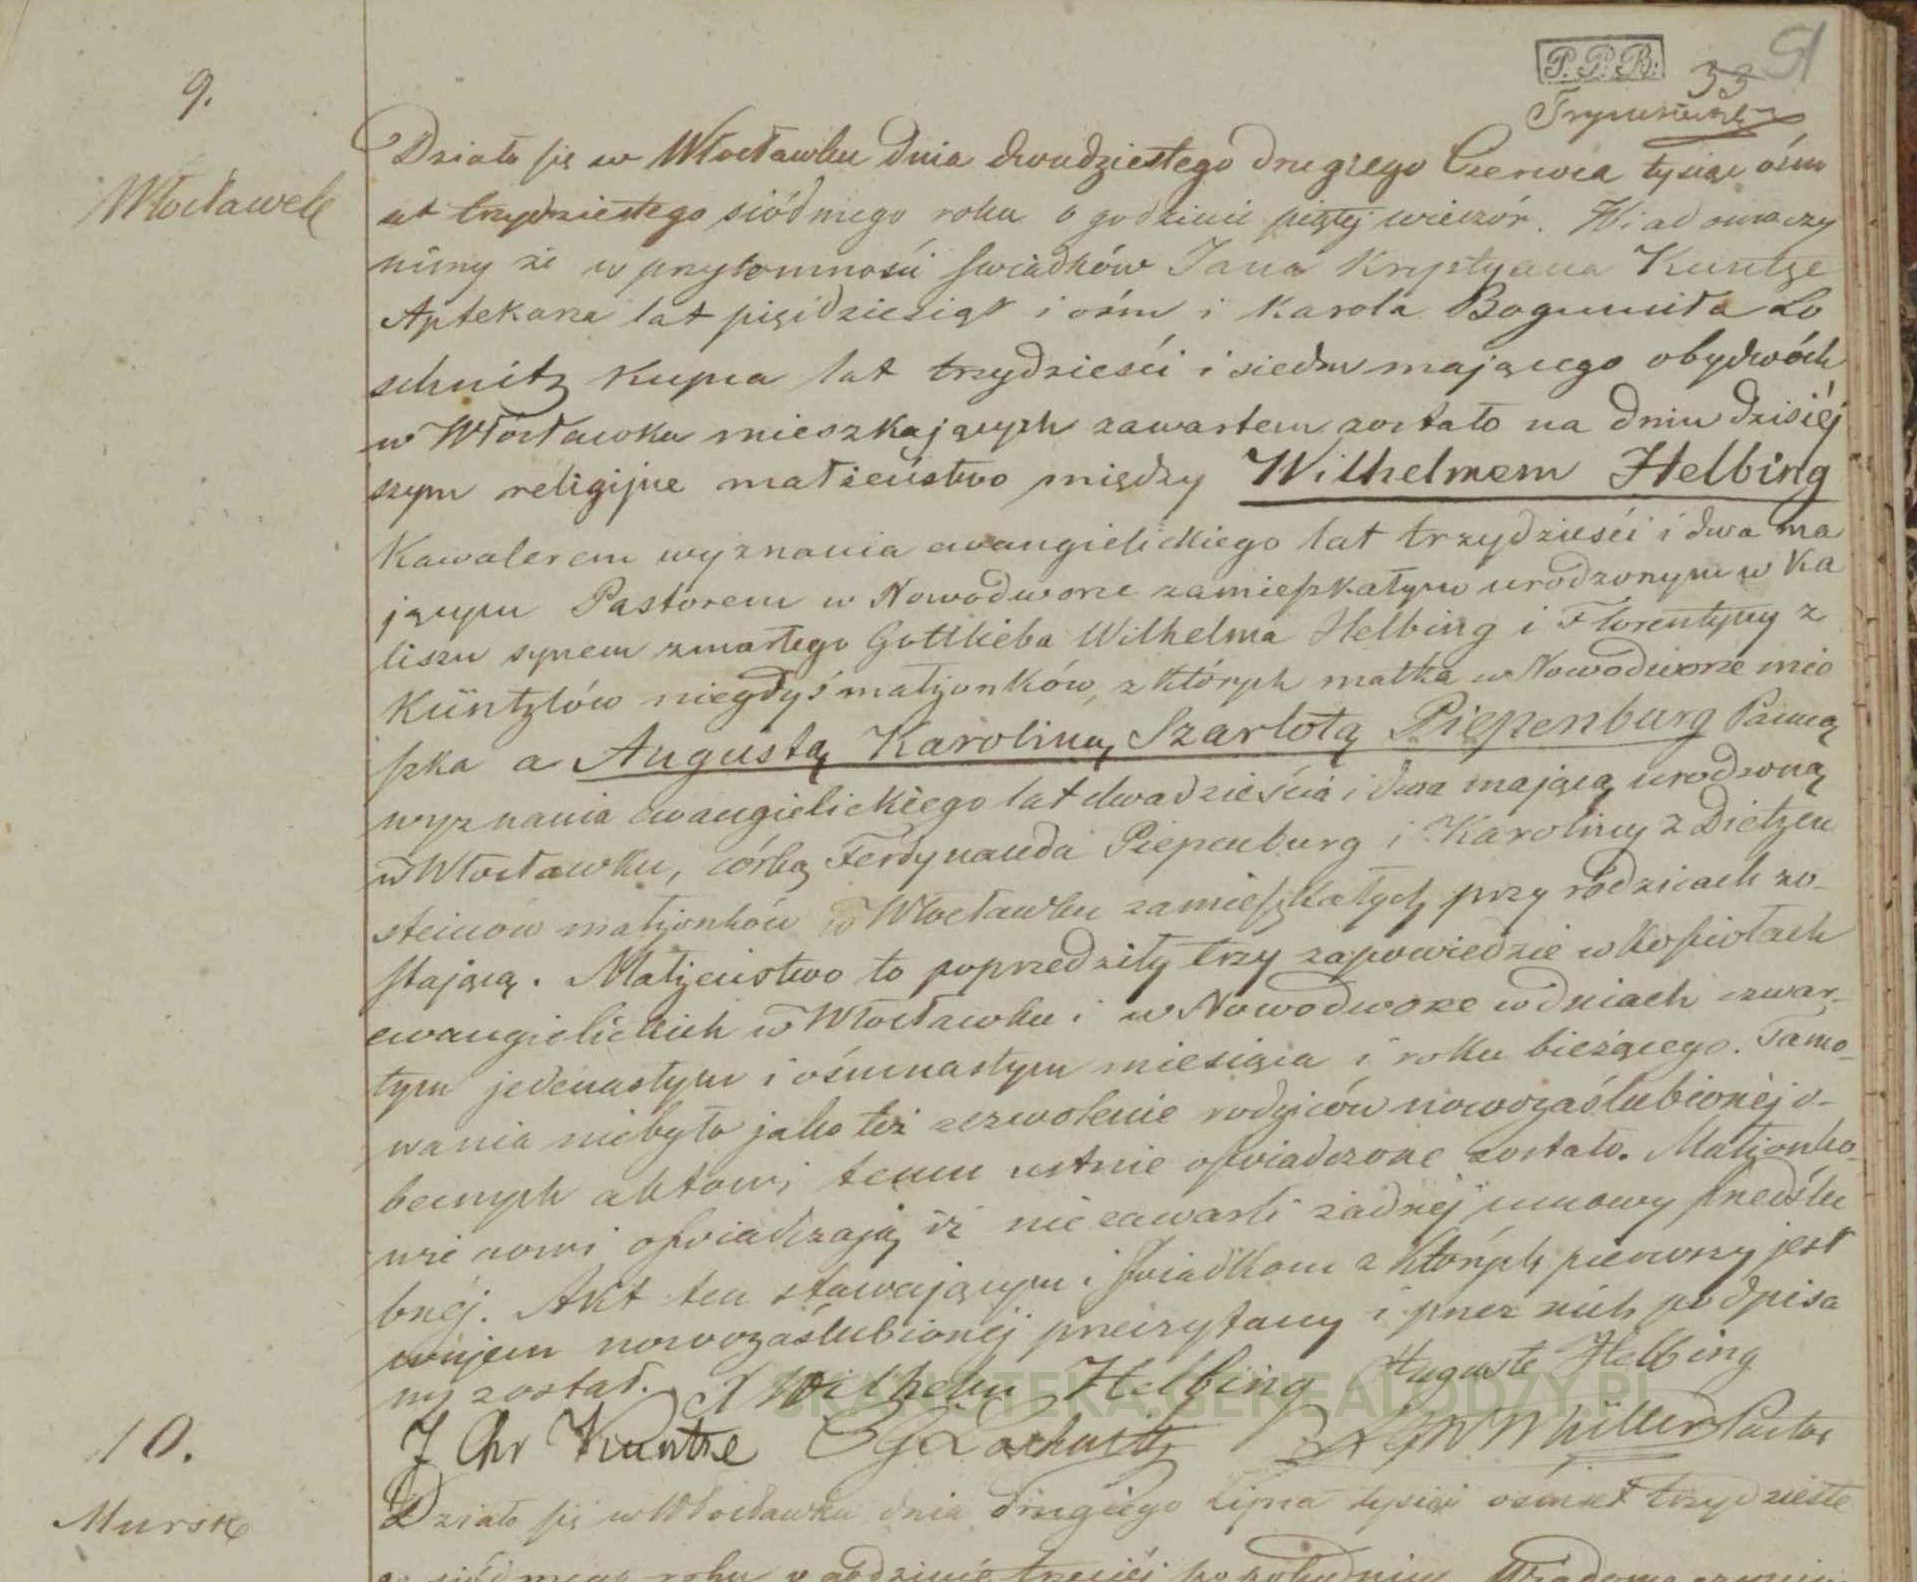 P.P.B.
33
51
9.
Włocławek
Działo się w Włocławku dnia dwudziestego drugiego Czerwca tysiąc ośm
set trzydziestego siódmego roku o godzinie piątej wieczór. Wiadomo czy
nimy że w przytomności świadków Jana Krystyana Kuntze
Aptekarza lat pięśdziesiąt i ośm i Karola Bogumiła Lo
schnitz Kupca lat trzydzieści i siedm mającego obydwóch
w Włocławku mieszkających zawartem zostało na dniu dzisiéj
szym religijne małżeństwo między Wilhelmem Helbing
Kawalerem wyznania ewangielickiego lat trzydzieści i dwa ma
jącym Pastorem w Nowodworze zamieszkałym urodzonym w Ka
liszu synem zmarłego Gottlieba Wilhelma Helbing i Florentyny z
Küntzlów niegdyś małżonków, z których matka w Nowodworze mie
szka a Augustą Karoliną Szarlotą Piepenburg Panną
wyznania ewangielickiego lat dwadzieścia i dwa mającą urodzoną
w Włocławku, córką Ferdynanda Piepenburg i Karoliny z Dietzen
steinów małżonków w Włocławku zamieszkałych przy rodzicach zo-
stającą. Małżeństwo to poprzedziły trzy zapowiedzie w kościołach
ewangielickich w Włocławku i w Nowodworze w dniach czwar-
tym jedenastym i ośmnastym miesiąca i roku bieżącego. Tamo-
wania niebyło jako też zezwolenie rodziców nowozaślubionéj o-
becnych aktowi temu ustnie oświadczone zostało. Małżonko-
wie nowi oświadczają iż nie zawarli żadnéj umowy przedślu
bnéj. Akt ten stawającym i świadkom z których pierwszy jest
wujem nowozaślubionéj przeczytany i przez nich podpisa
ny został. Wilhelm Helbing Auguste Helbing
J Chr Kuntze C G Loschnitz Müller Pastor
SKANOTEKA.GENEALODZY.PL
10.
Mursk
Działo się w Włocławku dnia drugiego Lipca tysiąc ośmset trzydzieste
go siódmego roku o godzinie trzeciéj po południu Wiadomo czynim